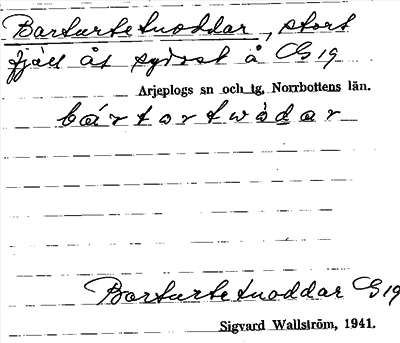 Barturtetuoddar, stort
fjäll åt sydost å G 19
Arjeplogs sn och tg, Norrbottens län.
bártortwòdar
Barturtetuoddar G 19
Sigvard Wallström, 1941.